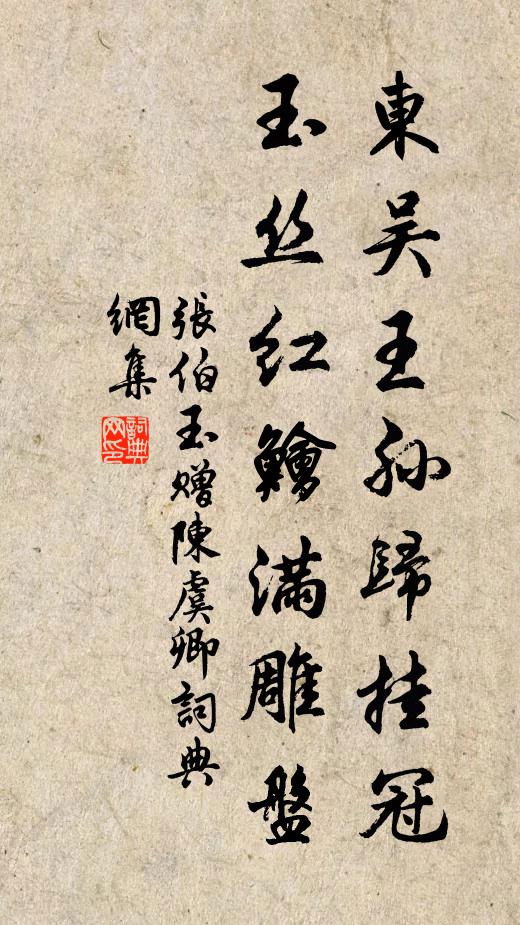 東吴王孙歸挂冠
玉丝紅鱠满雕盤
張伯玉赠陳虞卿詞典
網集
詞典
网印